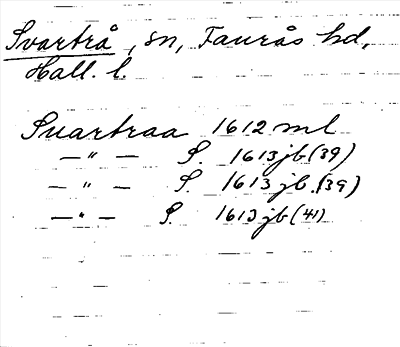 Svartrå, sn, Faurås hd,
Hall. l.
Suartraa 1612 ml
—"— S. 1613 jb (39)
—"— S. 1613 jb. (39)
—"— S. 1613 jb (41)